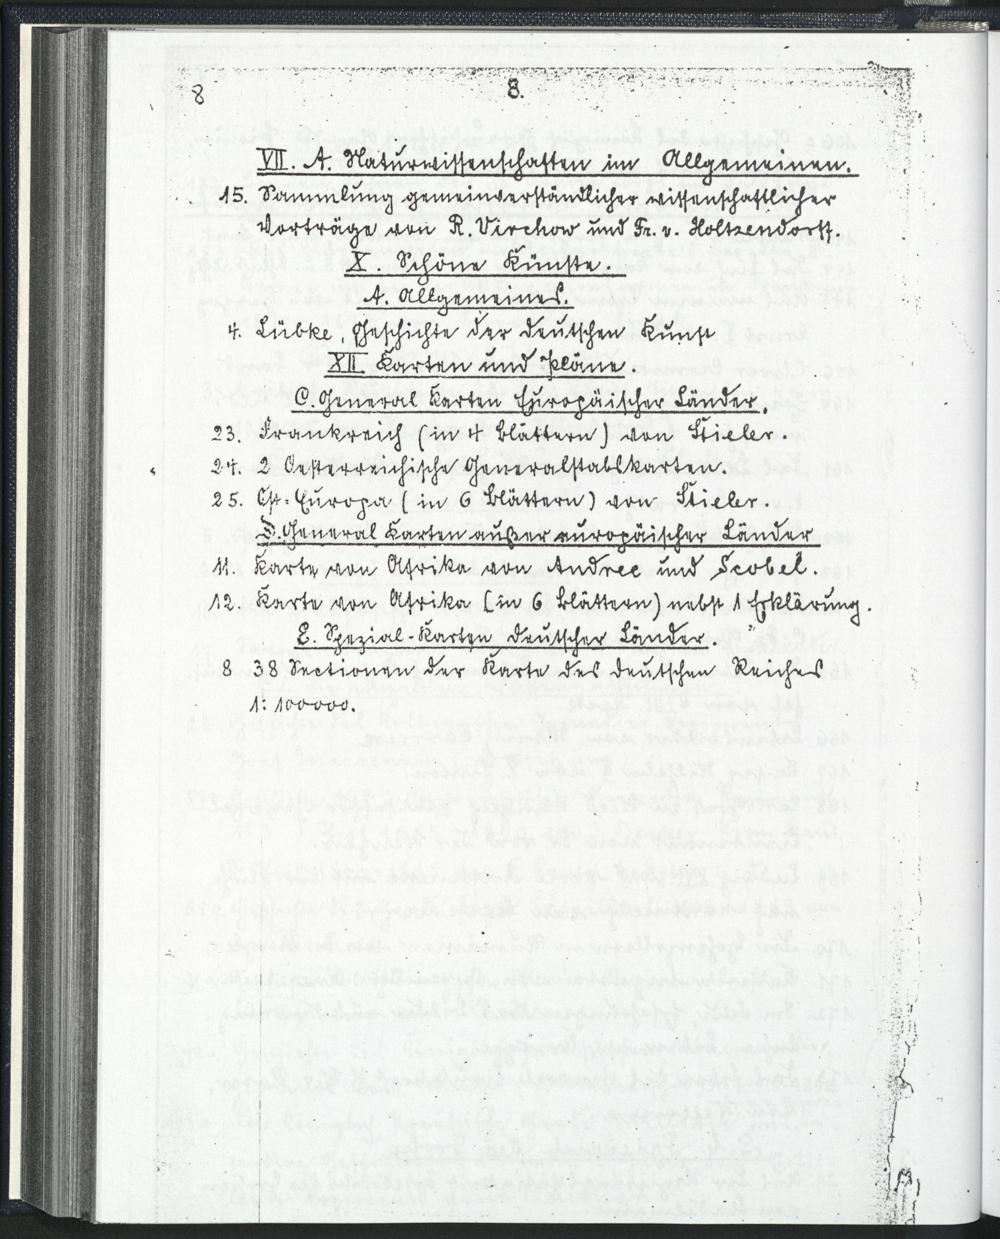 8 8.
VII. A. Naturwissenschaften im Allgemeinen.
15. Sammlung gemeinverständlicher wissenschaftlicher
Vorträge von R. Virchow und Fr. v. Holtzendorff.
X. Schöne Künste.
A. Allgemeines.
4. Lübke, Geschichte der deutschen Kunst
XII. Karten und Pläne.
C. General Karten Europäischer Länder.
23. Frankreich (in 4 Blättern) von Stieler.
24. 2 Oesterreichische Generalstabskarten.
25. Ost-Europa (in 6 Blättern) von Stieler.
D. General Karten außereuropäischer Länder
11. Karte von Afrika von Andree und Scobel.
12. Karte von Afrika (in 6 Blättern) nebst 1 Erklärung.
E. Spezial-Karten deutscher Länder.
8 38 Sectionen der Karte des deutschen Reiches
1: 100000.